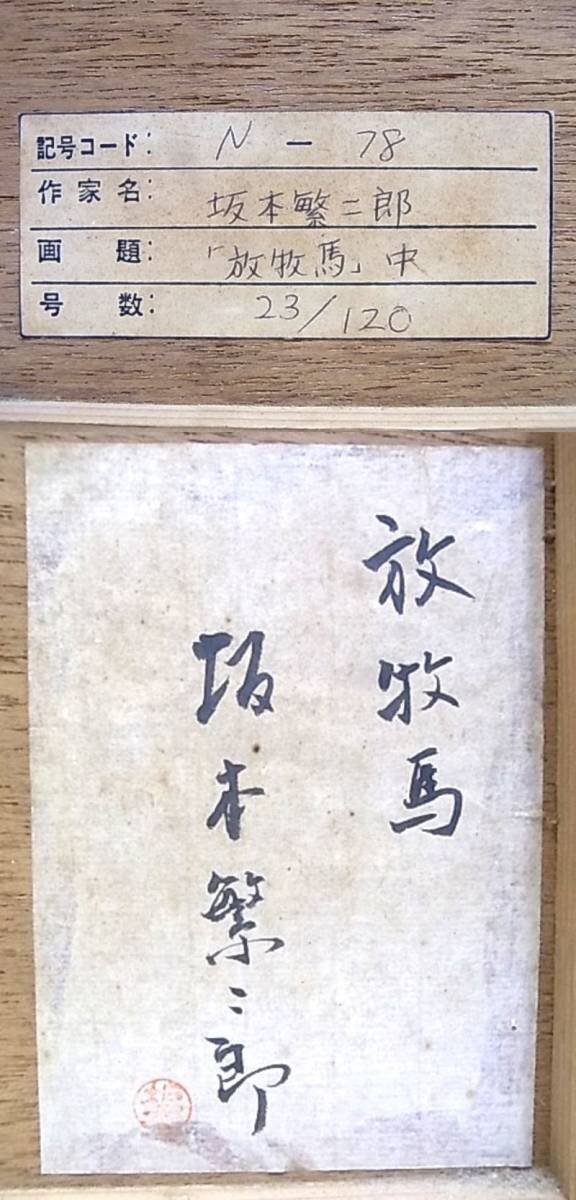 記号コード: N - 78
作家名: 坂本繁二郎
画題: 「放牧馬」中
号数: 23/120
放牧馬
坂本繁二郎